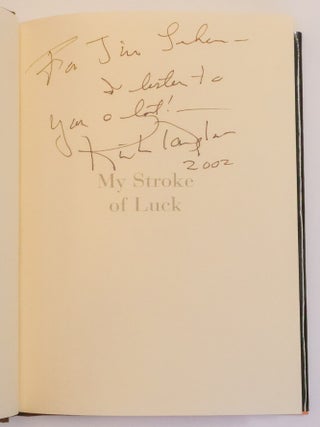 For Jim Lehrer –
I listen to
you a lot! –
Kirk Douglas
2002
My Stroke
of Luck